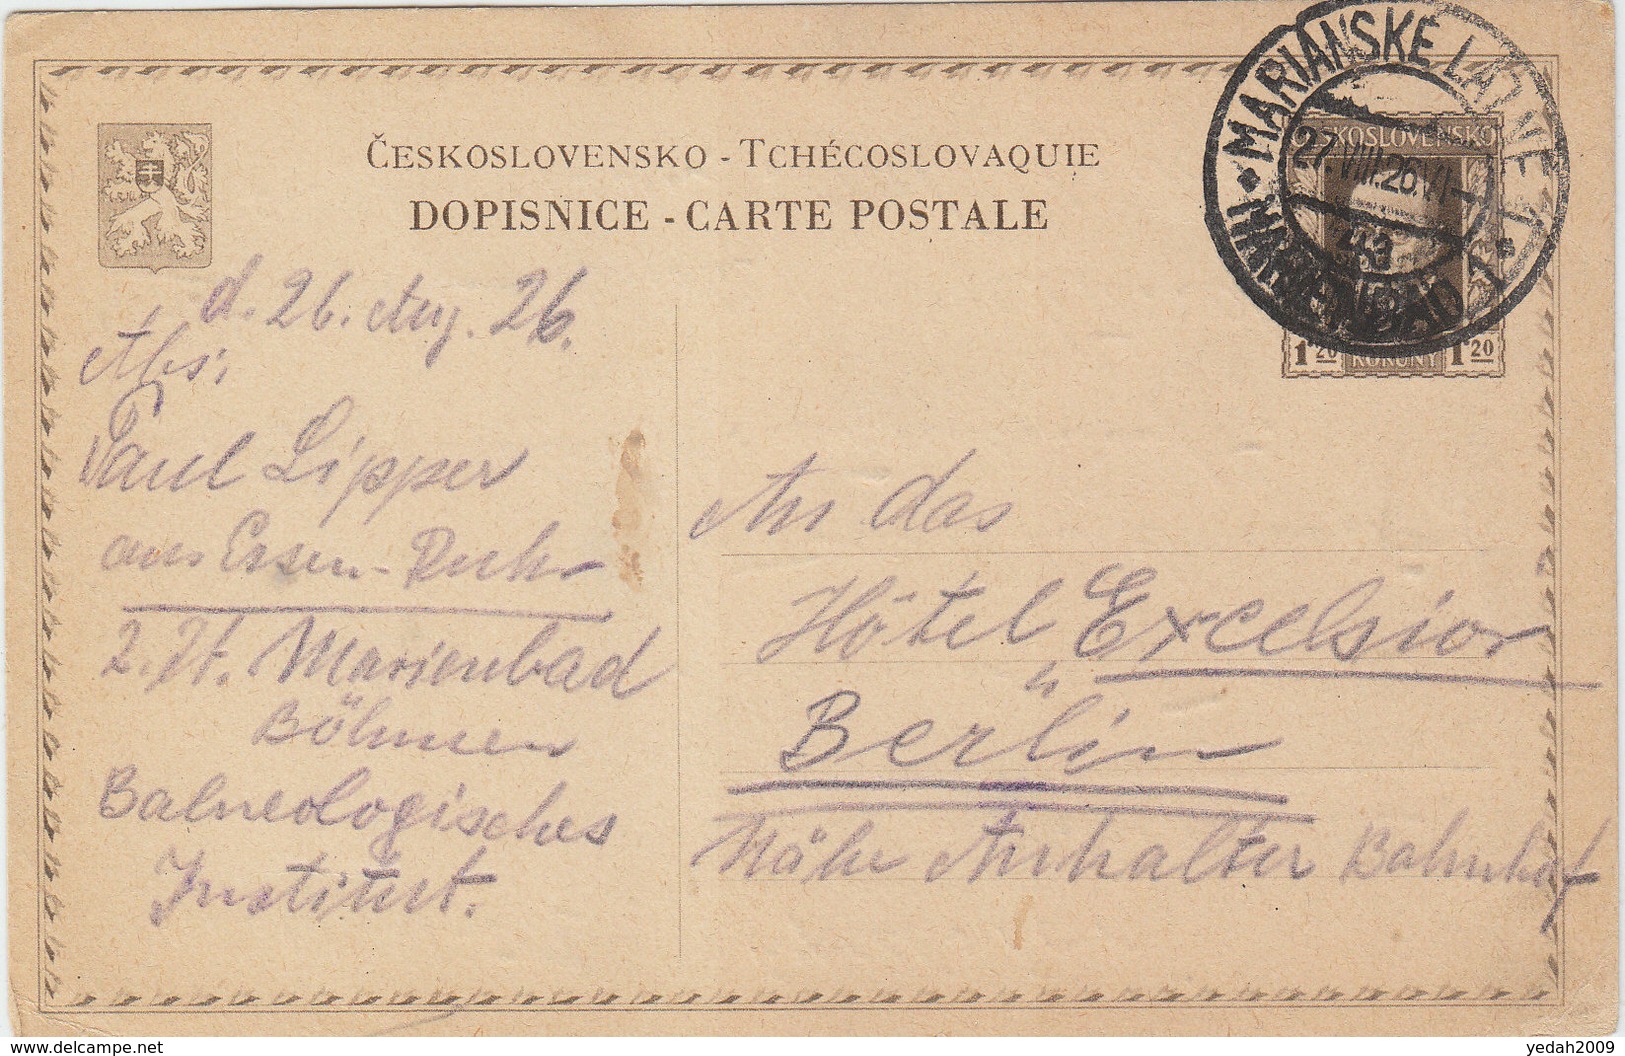 ČESKOSLOVENSKO - TCHÉCOSLOVAQUIE
DOPISNICE - CARTE POSTALE
MARIÁNSKÉ LÁZNĚ
27.VIII.26.VI-
MARIENBAD 1
ČESKOSLOVENSKO
1 20 KORUNY 1 20
d. 26. Aug. 26.
Abs:
Paul Lipper
aus Essen-Ruhr
z. Zt. Marienbad
Böhmen
Balneologisches
Institut.
An das
Hôtel „Excelsior"
Berlin
Nähe Anhalter Bahnhof
delcampe.net
yedah2009